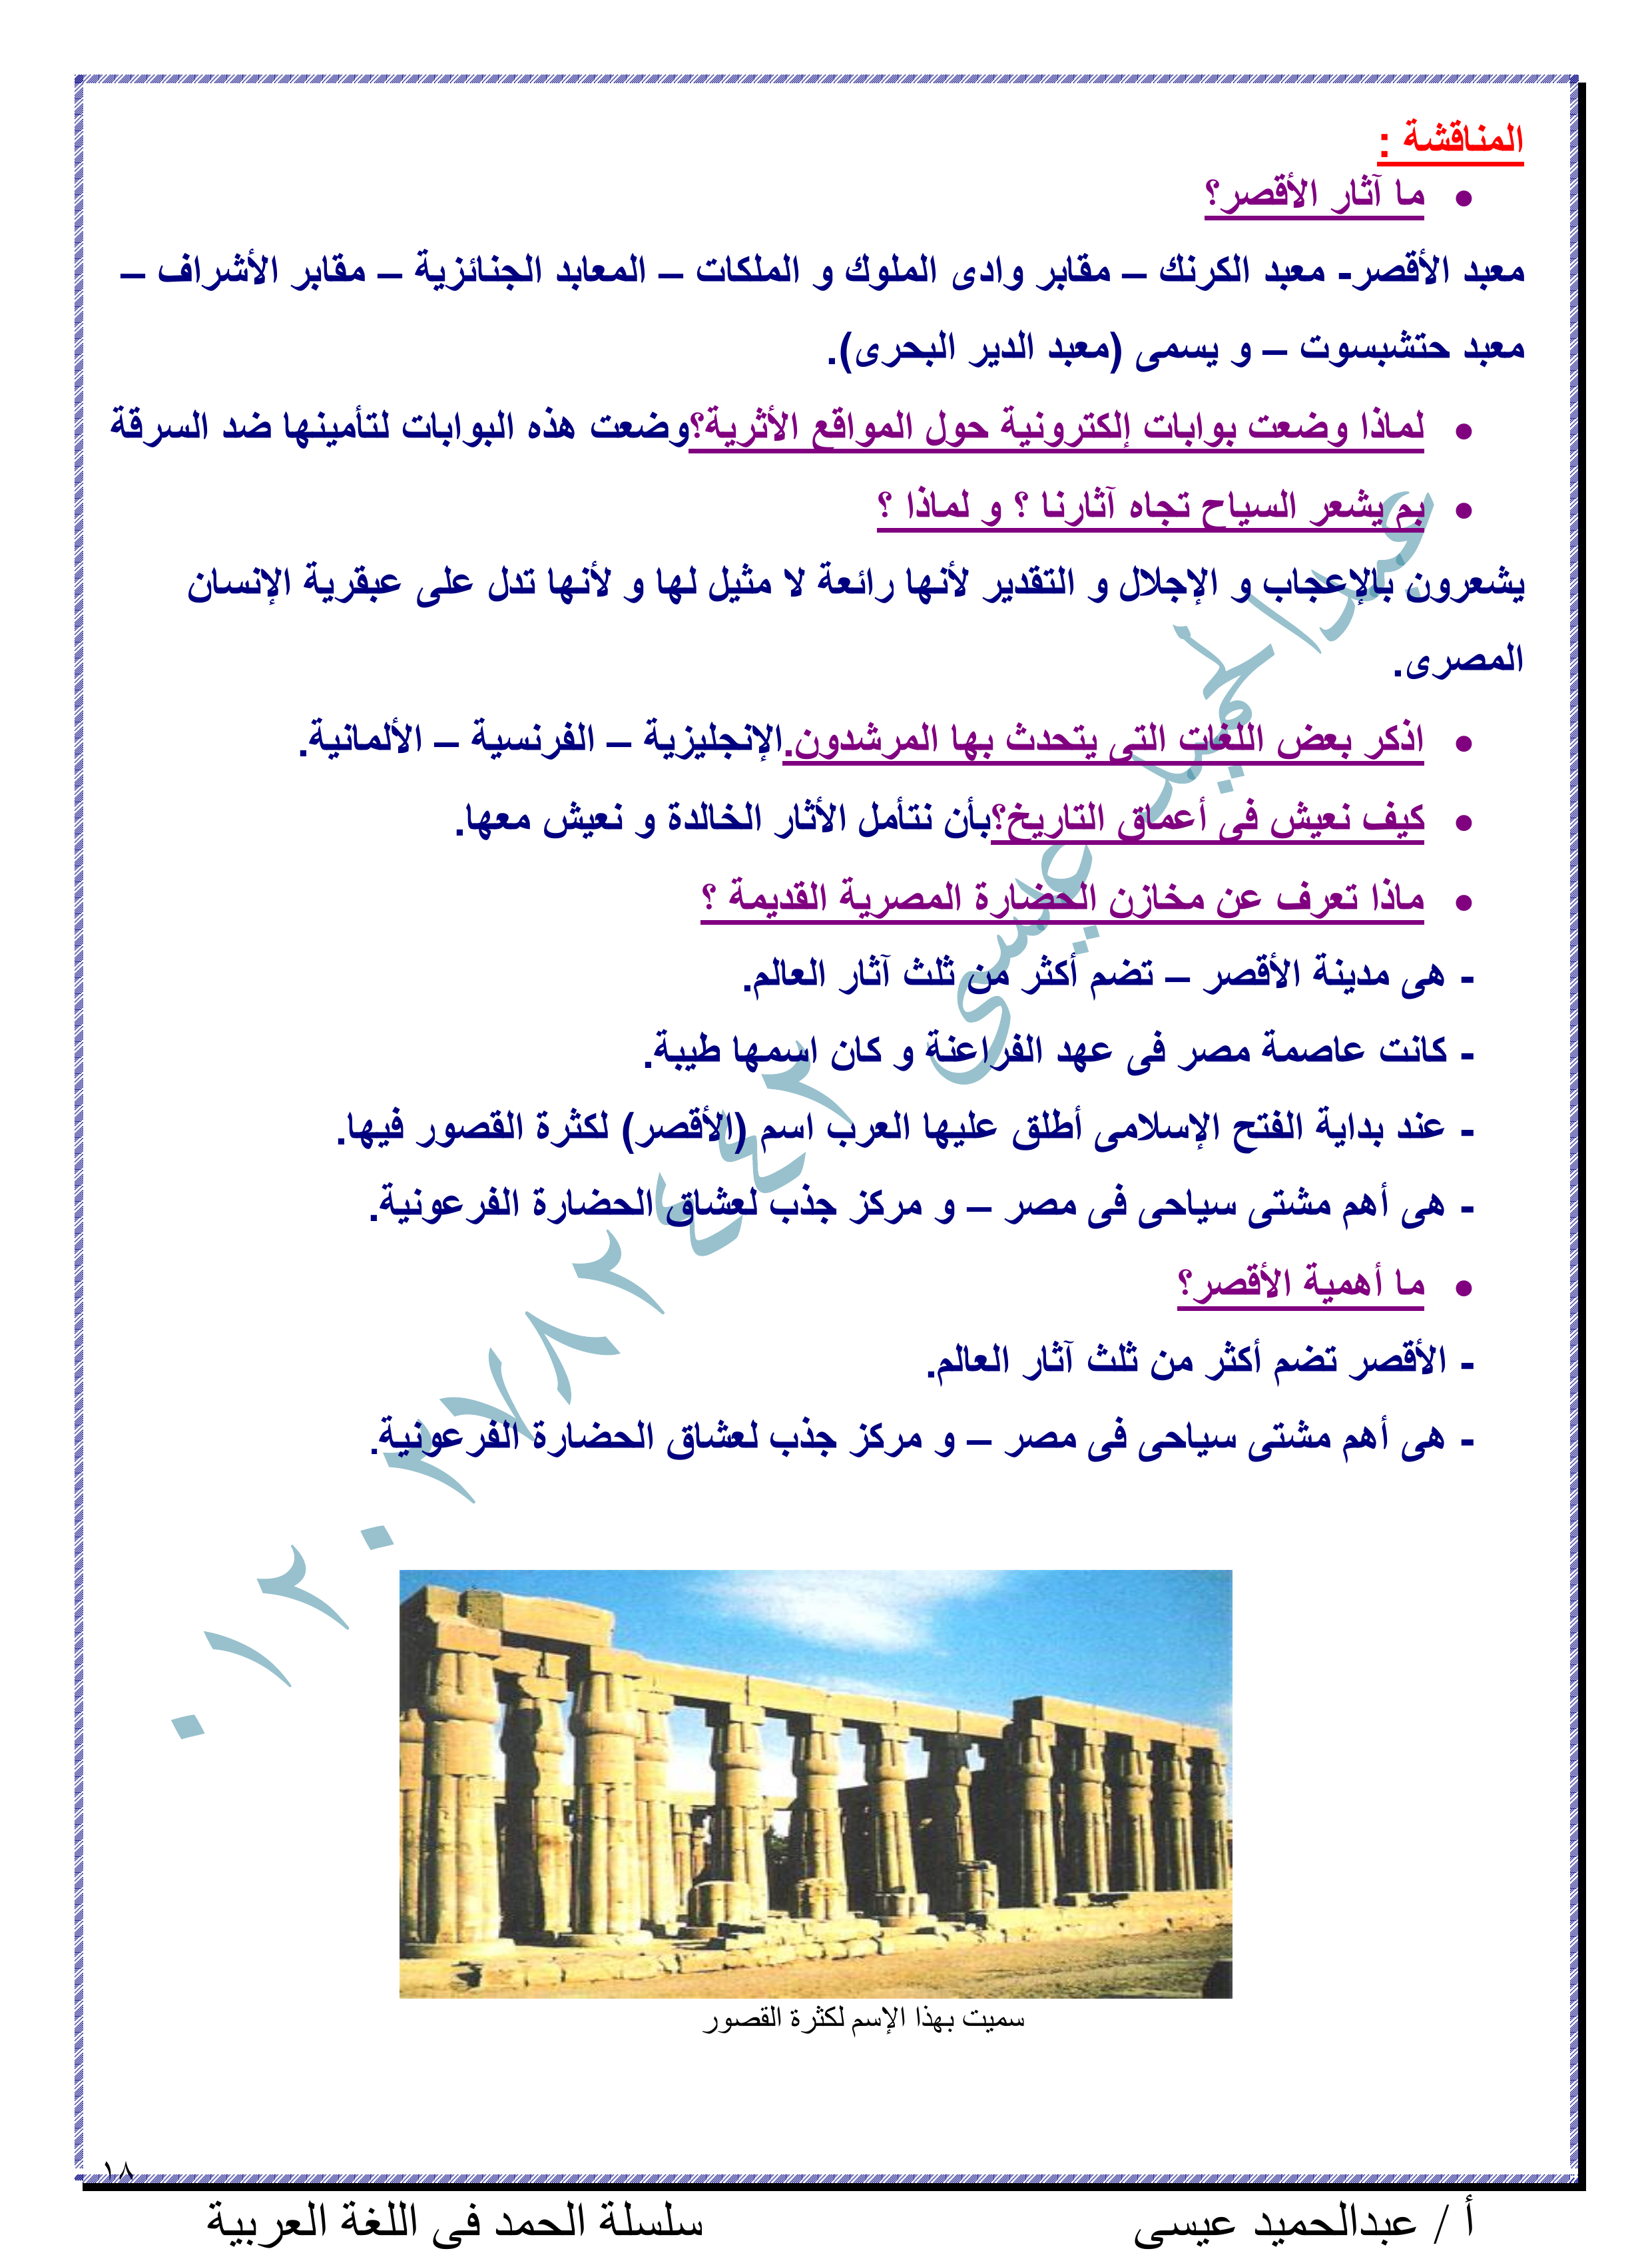 المناقشة :
• ما آثار الأقصر؟
معبد الأقصر- معبد الكرنك – مقابر وادى الملوك و الملكات – المعابد الجنائزية – مقابر الأشراف –
معبد حتشبسوت – و يسمى (معبد الدير البحرى).
• لماذا وضعت بوابات إلكترونية حول المواقع الأثرية؟وضعت هذه البوابات لتأمينها ضد السرقة
• بم يشعر السياح تجاه آثارنا ؟ و لماذا ؟
يشعرون بالإعجاب و الإجلال و التقدير لأنها رائعة لا مثيل لها و لأنها تدل على عبقرية الإنسان
المصرى.
• اذكر بعض اللغات التى يتحدث بها المرشدون.الإنجليزية – الفرنسية – الألمانية.
• كيف نعيش فى أعماق التاريخ؟بأن نتأمل الأثار الخالدة و نعيش معها.
• ماذا تعرف عن مخازن الحضارة المصرية القديمة ؟
- هى مدينة الأقصر – تضم أكثر من ثلث آثار العالم.
- كانت عاصمة مصر فى عهد الفراعنة و كان اسمها طيبة.
- عند بداية الفتح الإسلامى أطلق عليها العرب اسم (الأقصر) لكثرة القصور فيها.
- هى أهم مشتى سياحى فى مصر – و مركز جذب لعشاق الحضارة الفرعونية.
• ما أهمية الأقصر؟
- الأقصر تضم أكثر من ثلث آثار العالم.
- هى أهم مشتى سياحى فى مصر – و مركز جذب لعشاق الحضارة الفرعونية.
عبدالحميد عيسى ٠١٢٠٢٧٨٢٤٤٢
سميت بهذا الإسم لكثرة القصور
١٨
أ / عبدالحميد عيسى سلسلة الحمد فى اللغة العربية